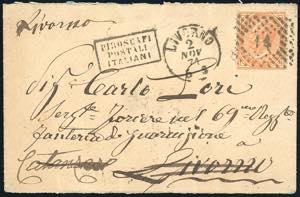 Livorno
PIROSCAFI
POSTALI
ITALIANI
LIVORNO
2
NOV
71
Sig.r Carlo Lori
Serg.te Foriere nel 69mo Regg.to
Fanteria di Guarnigione a
Catanzaro Livorno